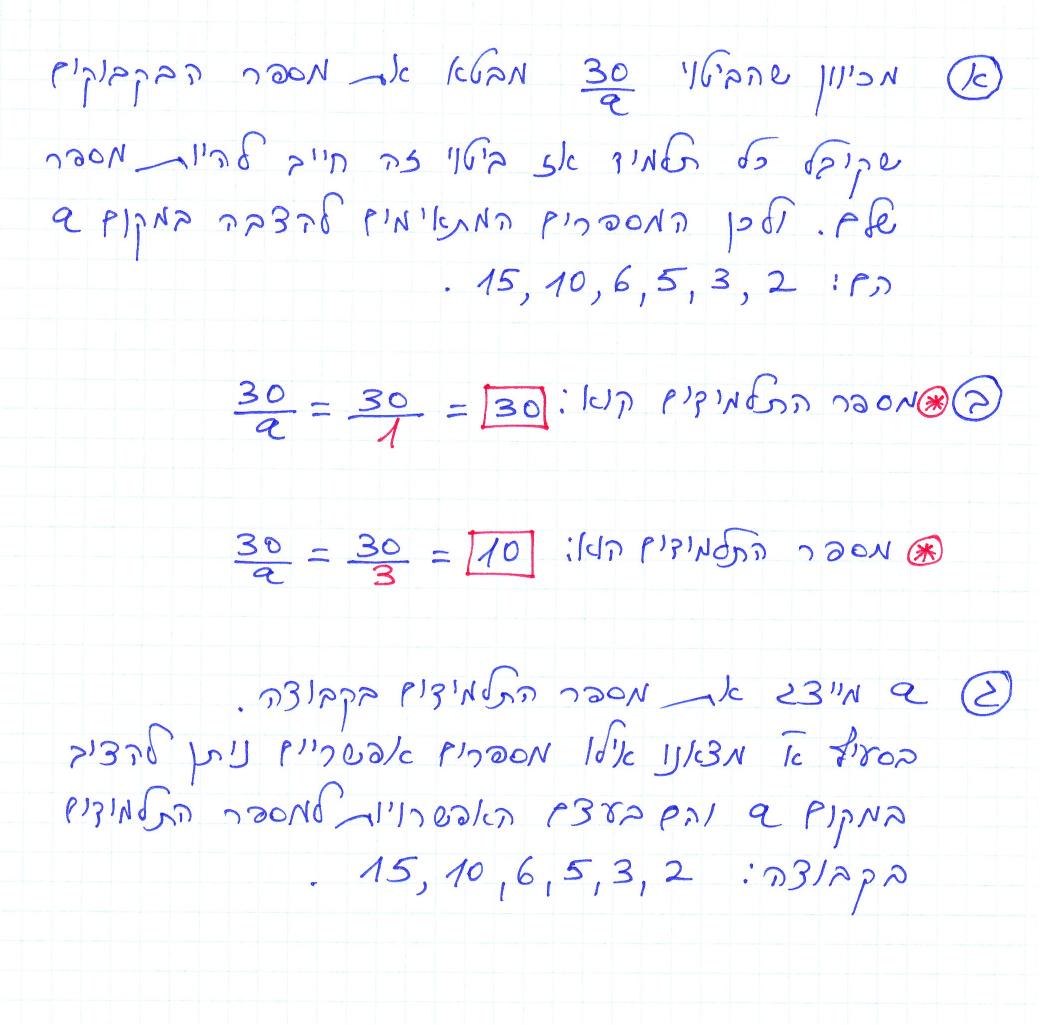 א מכיוון שהביטוי 30/a מבטא את מספר הבקבוקים
שקיבל כל תלמיד אז ביטוי זה חייב להיות מספר
שלם. ולכן המספרים המתאימים להצבה במקום a
הם: 2, 3, 5, 6, 10, 15 .
ב * מספר התלמידים הוא: 30/a = 30/1 = 30
* מספר התלמידים הוא: 30/a = 30/3 = 10
ג a מייצג את מספר התלמידים בקבוצה .
בסעיף א' מצאנו אילו מספרים אפשריים ניתן להציב
במקום a והם בעצם האפשרויות למספר התלמידים
בקבוצה: 2, 3, 5, 6, 10, 15 .